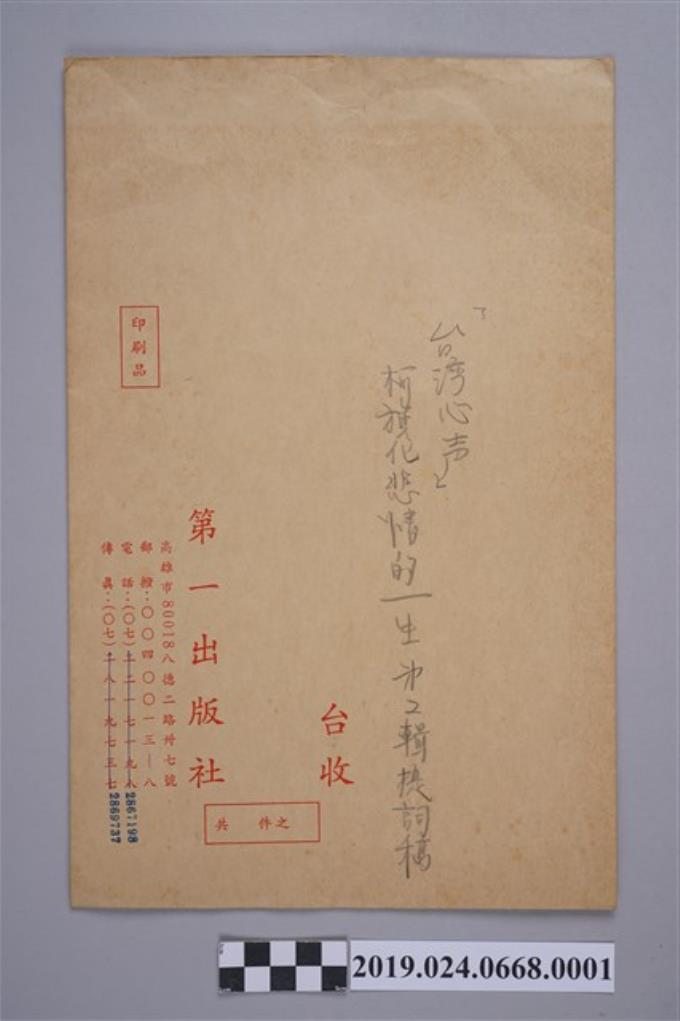 「台湾心声」
柯旗化悲情的一生第2輯提詞稿
台收
共　件之
第一出版社
高雄市80018八德二路卅七號
郵撥：〇〇四〇〇一三—八
電話：(〇七)二二一七一九八
2867198
傳眞：(〇七)二八一九七三七
2869737
印刷品
2019.024.0668.0001